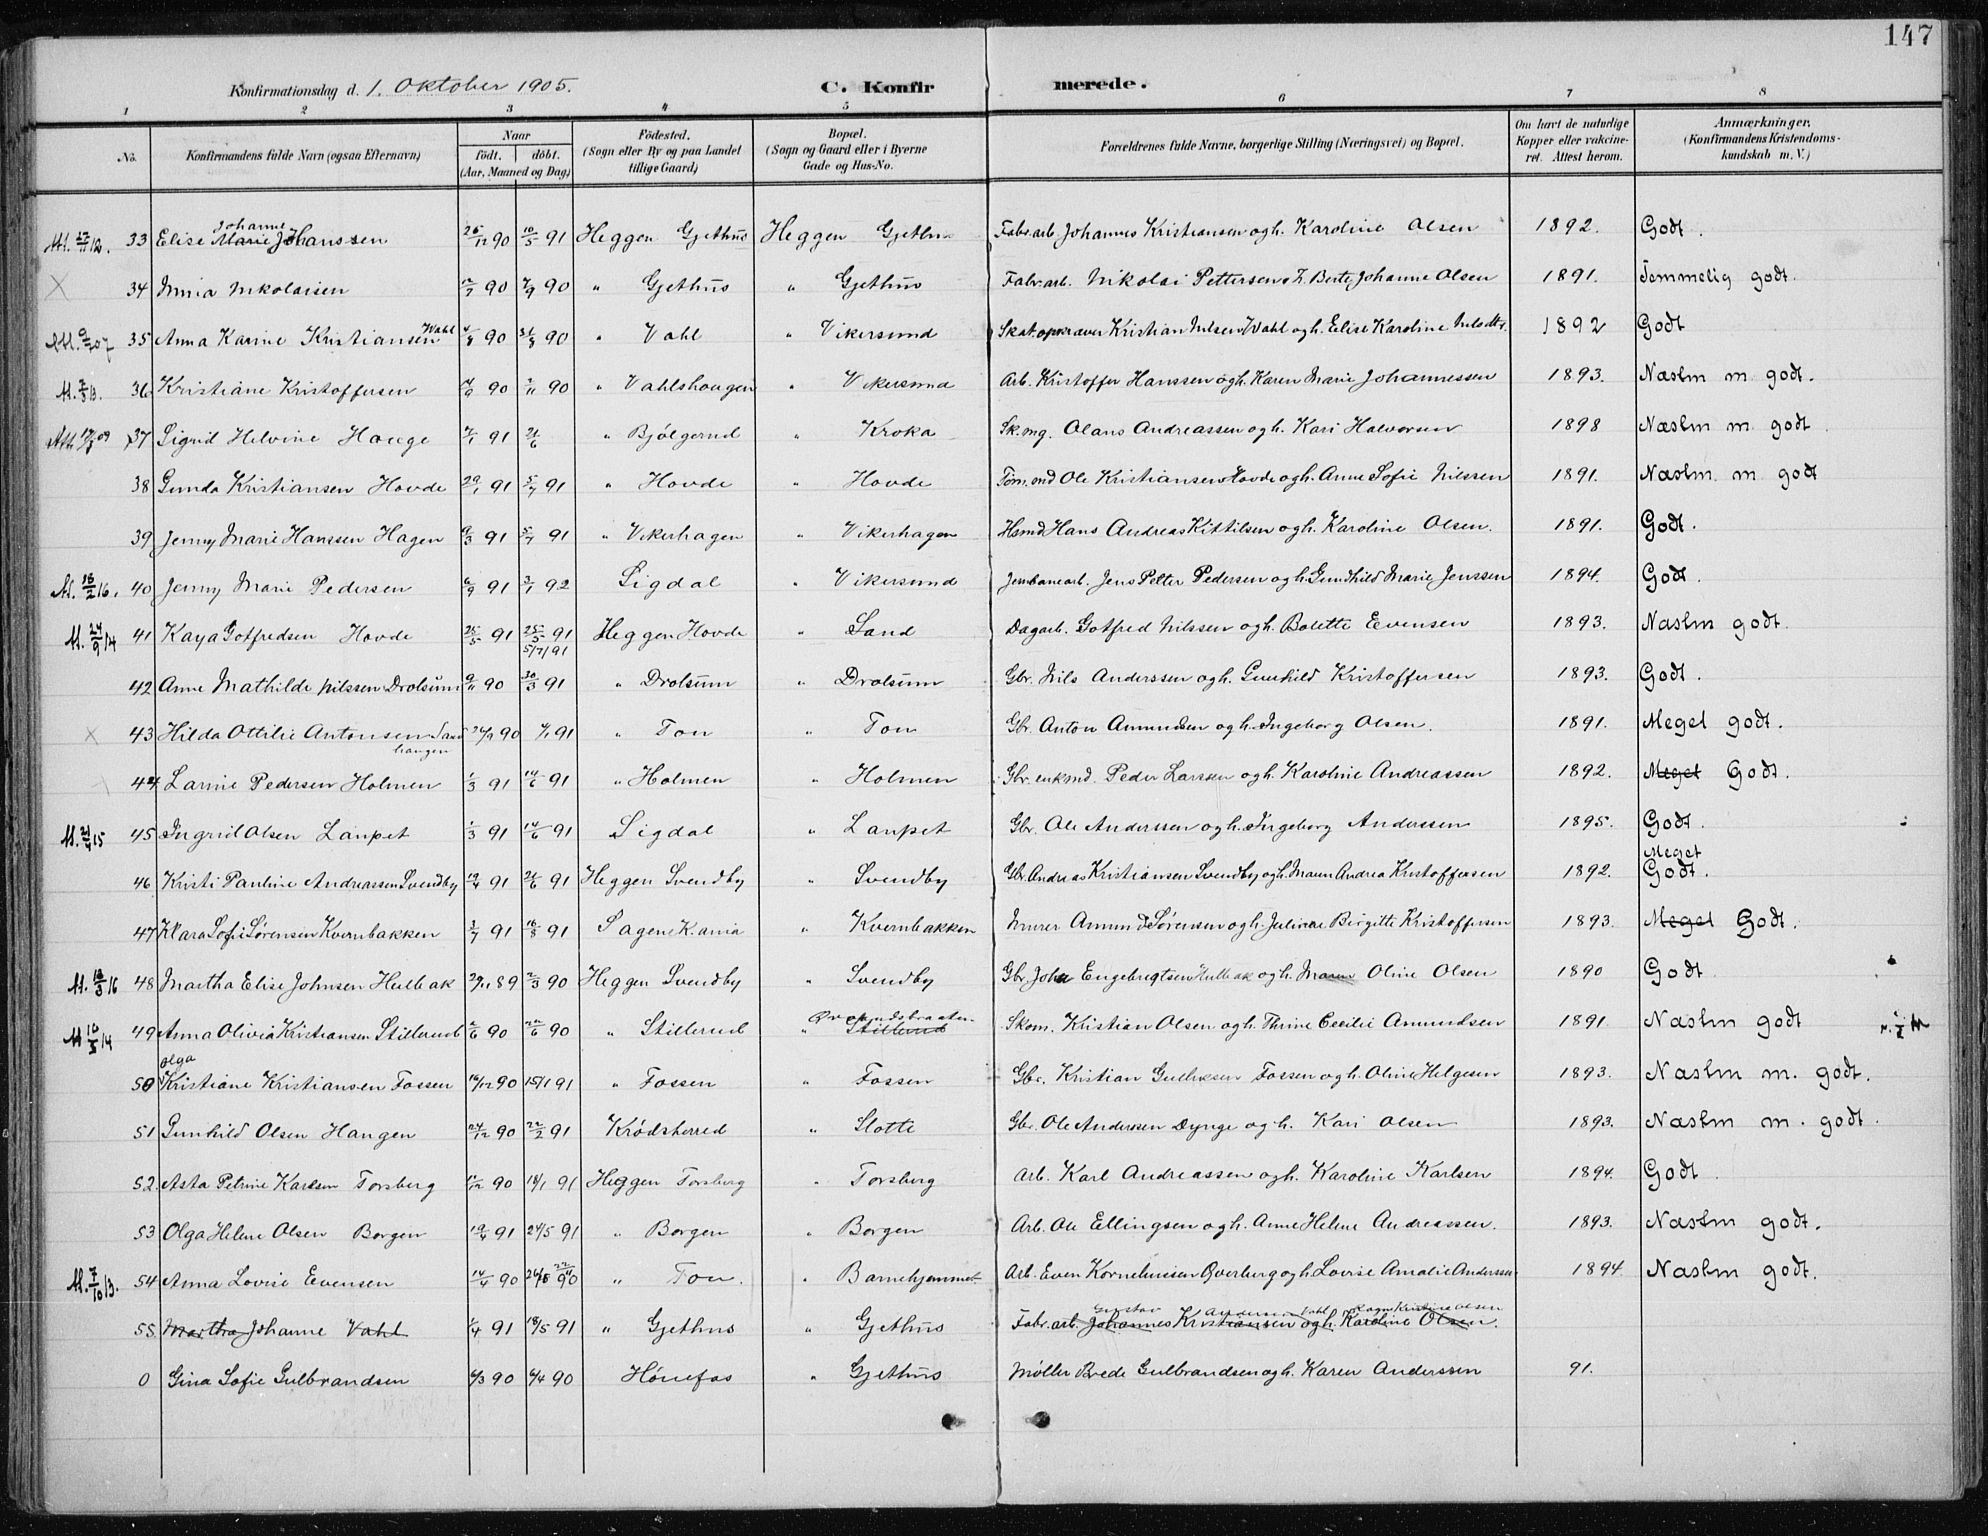 147
Konfirmationsdag d. 1. Oktober 1905. C. Konfirmerede.
1 2 3 4 5 6 7 8
No. Konfirmandens fulde Navn (ogsaa Efternavn) Naar født. døbt. (Aar, Maaned og Dag) Fødested. (Sogn eller By og paa Landet tillige Gaard) Bopæl. (Sogn og Gaard eller i Byerne Gade og Hus-No. Forældrenes fulde Navne, borgerlige Stilling (Næringsvei) og Bopæl. Om havt de naturlige Kopper eller vakcineret. Attest herom. Anmærkninger. (Konfirmandens Kristendomskundskab m. V.)
Johanne
33 Elise Marie Johanssen 26/12 90 10/5 91 Heggen Gjethus Heggen Gjethus Fabr.arb. Johannes Kristiansen og h. Karoline Olsen 1892. Godt.
34 Innia Nikolaisen 90 90 " Gjethus " Gjethus Fabr.arb. Nikolai Pettersen o.h. Berte Johanne Olsen 1891. Temmelig godt.
35 Anna Karine Kristiansen Wahl 90 90 " Vahl " Vikersund Skat.opkræver Kristian Nilsen Wahl og h. Elise Karoline Nilsdtr. 1892 Godt
36 Kristiane Kristoffersen 90 90 " Vahlshougen " Vikersund Arb. Kristoffer Hanssen og h. Karen Marie Johannessen 1893. Næstm m. godt.
37 Sigrid Helvine Hauge 91 21/6 " Bjølgerud " Kroka Sk.mg. Olaus Andreassen og h. Kari Halvorsen 1898 Næstm m. godt
38 Gunda Kristiansen Hovde 29/1 91 5/7 91 " Hovde " Hovde Tøm.md Ole Kristiansen Hovde og h. Anne Sofie Nilssen 1891. Næstm. m. godt
39 Jenny Marie Hanssen Hagen 9/3 91 5/7 91 " Vikerhagen " Vikerhagen Hsmd Hans Andreas Kittilsen og h. Karoline Olsen. 1891. Godt.
At. 18/2 16. 40 Jenny Marie Pedersen 6/9 91 3/1 92 Sigdal " Vikersund Jernbanearb. Jens Petter Pedersen og h. Gundhild Marie Jenssen 1894. Godt.
At. 24/9 14 41 Kaya Gotfredsen Hovde 25/5 91 25/5 91 Heggen Hovde " Sand Dagarb. Gotfred Nilssen og h. Bolette Evensen 1893. Næstm godt.
5/7 91
42 Anne Mathilde Nilssen Drolsum 9/11 90 30/3 91 " Drolsum " Drolsum Gbr. Nils Anderssen og h. Gunhild Kristoffersen 1893. Godt.
43 Hilda Ottilie Antonsen 90 91 " Ton " Ton Gbr. Anton Amundsen og h. Ingeborg Olsen. 1891. Meget godt.
haugen
44 Larine Pedersen Holmen 1/3 91 14/6 91 " Holmen " Holmen Gbr. enkmd. Peder Larssen og h. Karoline Andreassen 1892. Meget Godt.
45 Ingrid Olsen Laupet 1/3 91 14/6 91 Sigdal " Laupet Gbr. Ole Anderssen og h. Ingeborg Anderssen 1895. Godt.
Meget
46 Kristi Pauline Andreassen Svendby 19/4 91 21/6 91 Heggen Svendby " Svendby Gbr. Andreas Kristiansen Svendby og h. Maren Andrea Kristoffersen 1892. Godt.
47 Klara Sofie Sørensen Kvernbakken 3/7 91 16/8 91 Sagene K.ania " Kvernbakken Murer Amund Sørensen og h. Juliane Birgitte Kristoffersen 1893. Meget Godt.
48 Martha Elise Johnsen Hulbak 89 2/3 90 Heggen Svendby " Svendby Gbr. John Engebrigtsen Hulbak og h. Maren Oline Olsen 1890 Godt
49 Anna Olivia Kristiansen Stillerud 2/6 90 22/6 90 " Stillerud " Stillerud Skom. Kristian Olsen og h. Thrine Cecilie Amundsen 1891. Næstm godt
Olga
50 Kristiane Kristiansen Fossen 16/12 90 15/1 91 " Fossen " Fossen Gbr. Kristian Gulliksen Fossen og h. Oline Helgesen 1893. Næstm m. godt.
51 Gunhild Olsen Haugen 24/12 90 22/2 91 Krødsherred " Slotte Gbr. Ole Andersen Dynge og h. Kari Olsen 1893. Næstm m. godt.
52. Asta Petrine Karlsen Forsberg 90 18/1 91 Heggen Forsberg " Forsberg Arb. Karl Andreassen og h. Karoline Karlsen 1894. Godt.
53 Olga Helene Olsen Borgen 19/4 91 24/5 91 " Borgen " Borgen Arb. Ole Ellingsen og h. Anne Helene Andreassen. 1893. Næstm godt.
At. 7/10 13. 54 Anna Lovise Evensen 14/4 90 90 " Ton. " Barnehjemmet Arb. Even Korneliussen Øverberg og h. Lovise Amalie Anderssen 1894 Næstm godt.
Gustav Andersen Vahl Ragna Kristine Olsen
55. Martha Johanne Vahl 1/4 91 18/5 91 " Gjethus " Gjethus Fabr.arb. Johannes Kristiansen og h. Karoline Olsen.
0 Gina Sofie Gulbrandsen 6/3 90 6/4 90 Hønefos " Gjethus Møller Brede Gulbrandsen og h. Karen Anderssen 91.